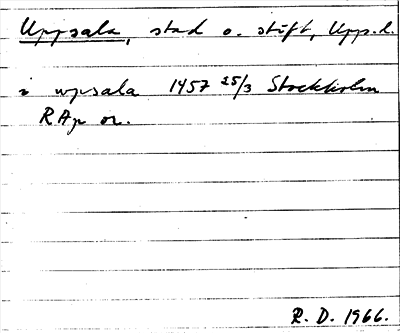 Uppsala, stad o. stift, Uppl.
i wpsala 1457 25/3 Stockholm
RAp or.
R. D. 1966.